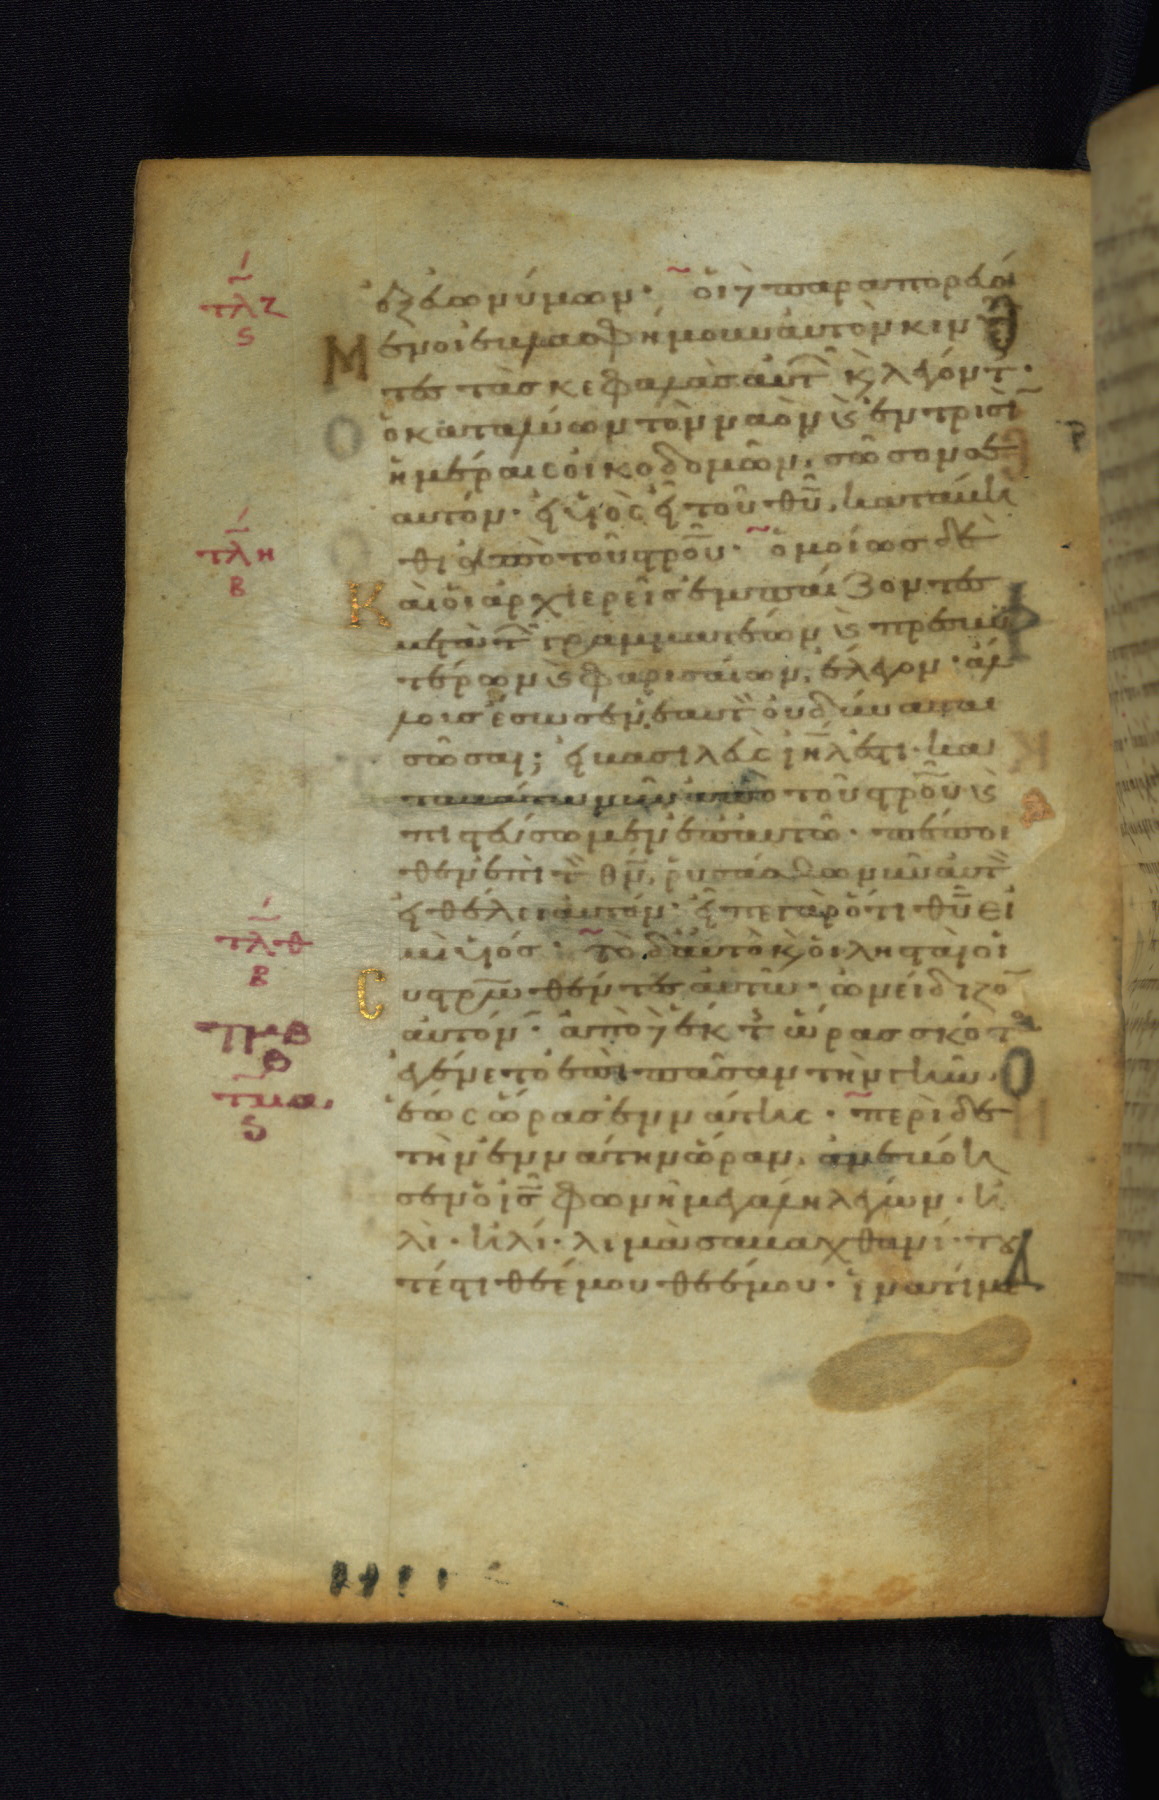 τλζ
ς
ἐξ εὐωνύμων· οἱ δὲ παραπορευό
Μ
ενοι ἐβλασφήμουν αὐτὸν κιν
τες τὰς κεφαλὰς αὐτ κ λέγοντ·
ὁ καταλύων τὸν ναὸν κ ἐν τρισὶ
ἡμέραις οἰκοδομῶν, σῶσον σε
αυτόν· εἰ υἱὸς εἶ τοῦ θῦ, κατάβη
τλη
β
θι ἀπὸ τοῦ στρου· ὁμοίως δὲ
Και οἱ ἀρχιερεῖς ἐμπαίζοντες
μετὰ τ γραμματέων κ πρεσβυ
τέρων κ φαρισαίων, ἔλεγον· ἄλ
λους ἔσωσεν ἑαυτ οὐ δύναται
σῶσαι; εἰ βασιλεὺς ιηλ ἐστι· κα
ταβάτω νῦν ἀπὸ τοῦ στρου κ
πιστεύσωμεν ἐπ αὐτῶ· πέποι
θεν ἐπὶ τ θν, ῥυσάσθω νῦν αὐτ
εἰ θέλει αὐτόν· εἶπε γὰρ ὅτι θῦ εἰ
τλθ
β
μὶ υἱός· τὸ δ αὐτὸ κ οἱ λησταὶ οἱ
Συστρω θέντες αὐτῶ· ὠνείδιζο
τμβ
β
αὐτόν· ἀπὸ δὲ ἕκτ ὥρας σκότ
ἐγένετο ἐπὶ πᾶσαν τὴν γῆν
τμα
ς
ἕως ὥρας ἐννάτης· περὶ δὲ
τὴν ἐννάτην ὥραν, ἀνεβόη
σεν ὁ ις φωνῆ μεγάλη λέγων· ἠ
λὶ· ἠλί· λιμὰ σαβαχθανί· του
τέστι θεέ μου θεέ μου· ἱνατί με